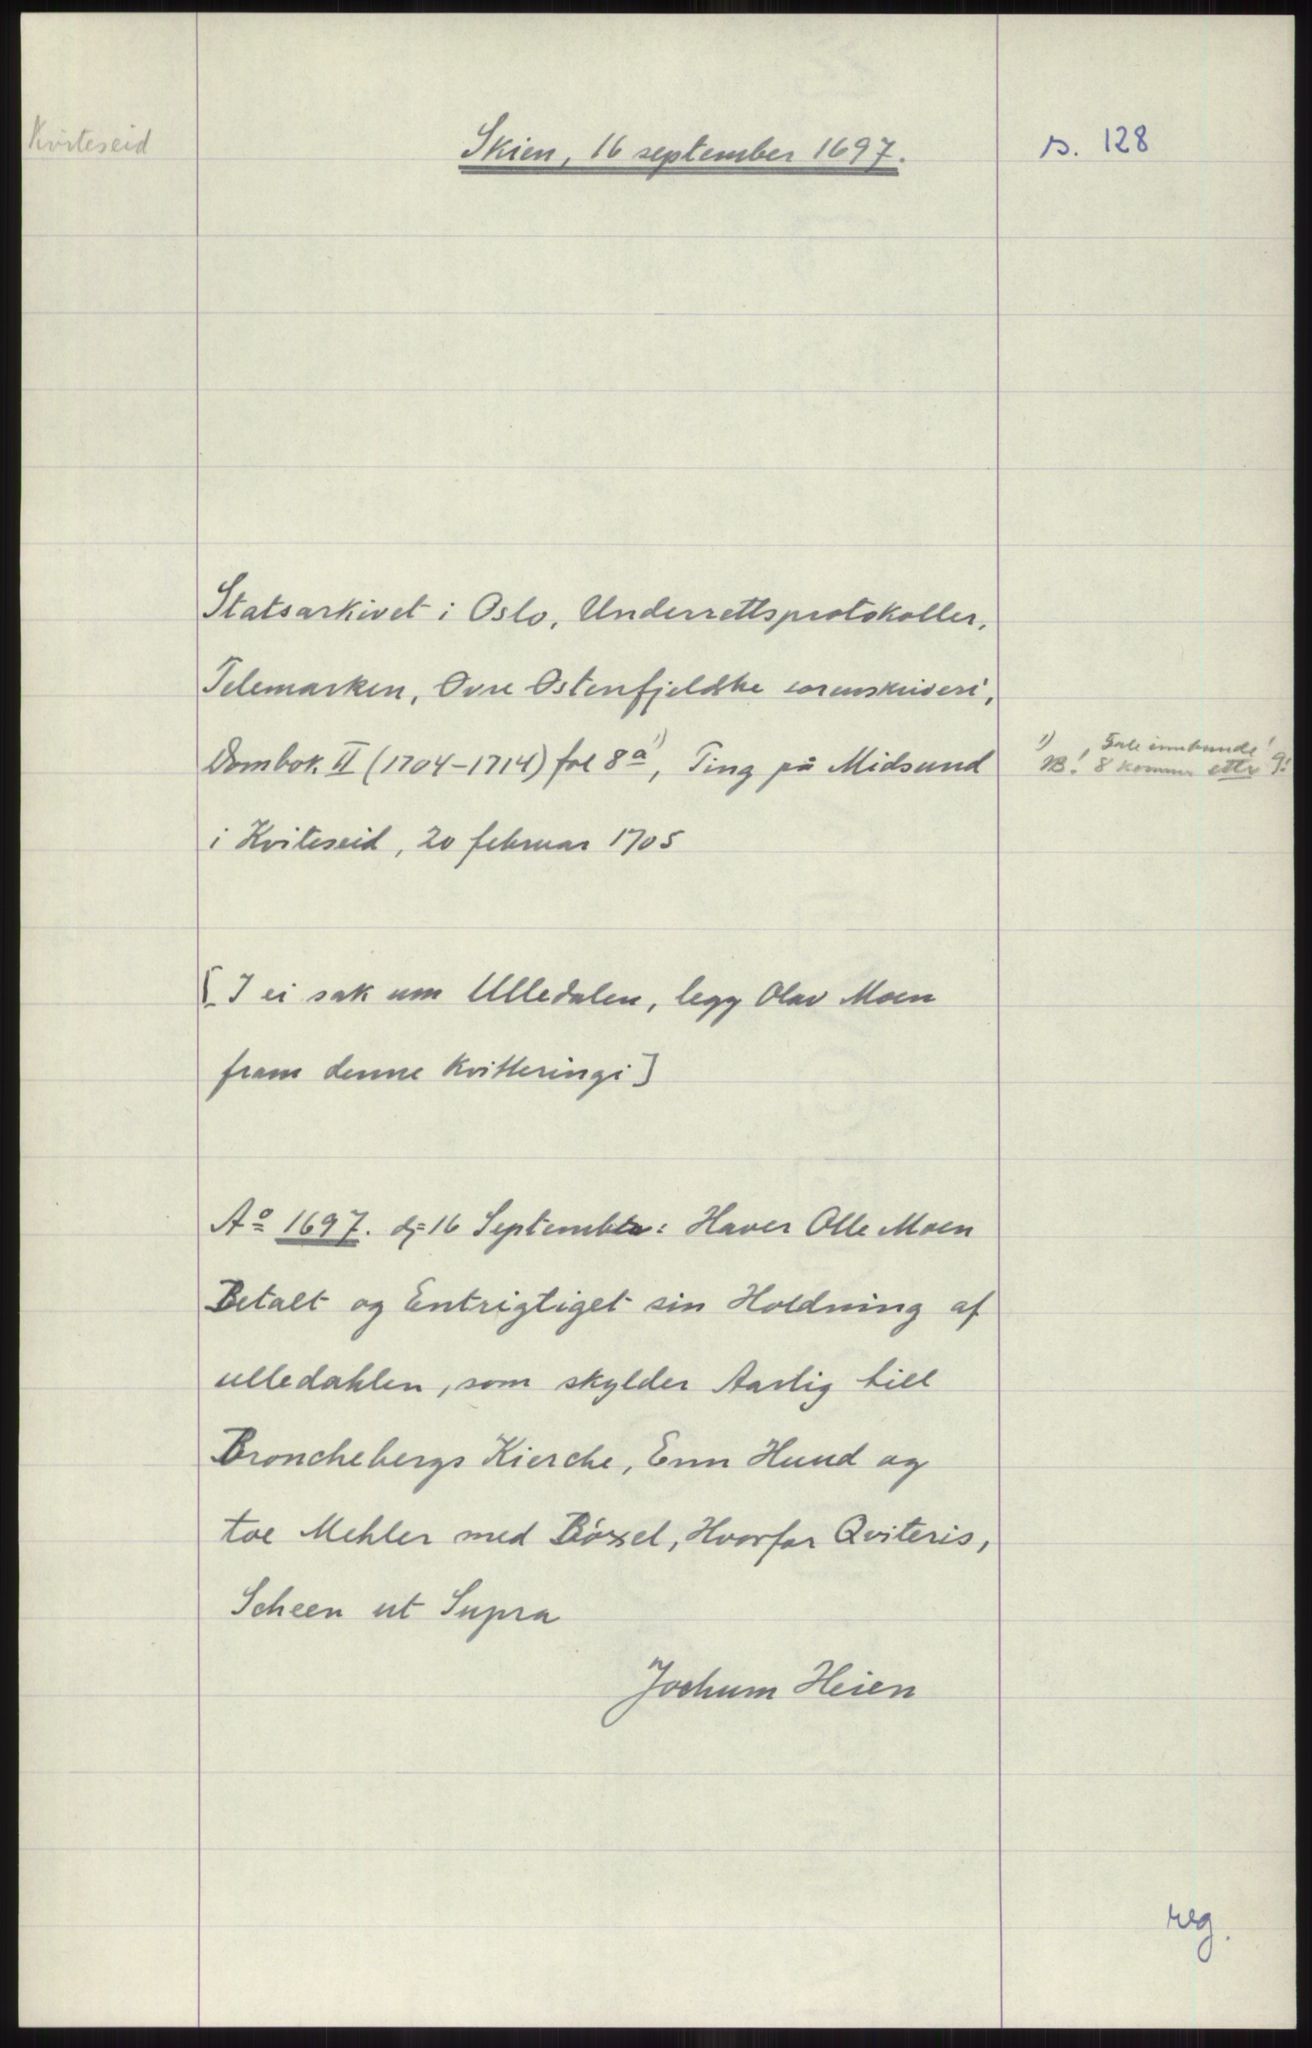 Kviteseid
Skien, 16 september 1697.
s. 128
Statsarkivet i Oslo, Underrettsprotokoller,
Telemarken, Øvre Østenfjeldske sorenskriveri,
Dombok II (1704-1714) fol 8a 1), Ting på Midsund
i Kviteseid, 20 februar 1705
1)
NB! 8 kommer ettr 9!
[I ei sak um Ulledalen, legg Olav Moen
fram denne kvitteringi]
Ao 1697. d= 16 September: Haver Olle Moen
Betalt og Entrigtiget sin Holdning af
ulledahlen, som skylder Aarlig till
Bronchebergs Kierche, Enn Huud og
toe Mehler med Böxel, Hvorfor Qviteris,
Scheen ut Supra
Jochum Heien
reg.